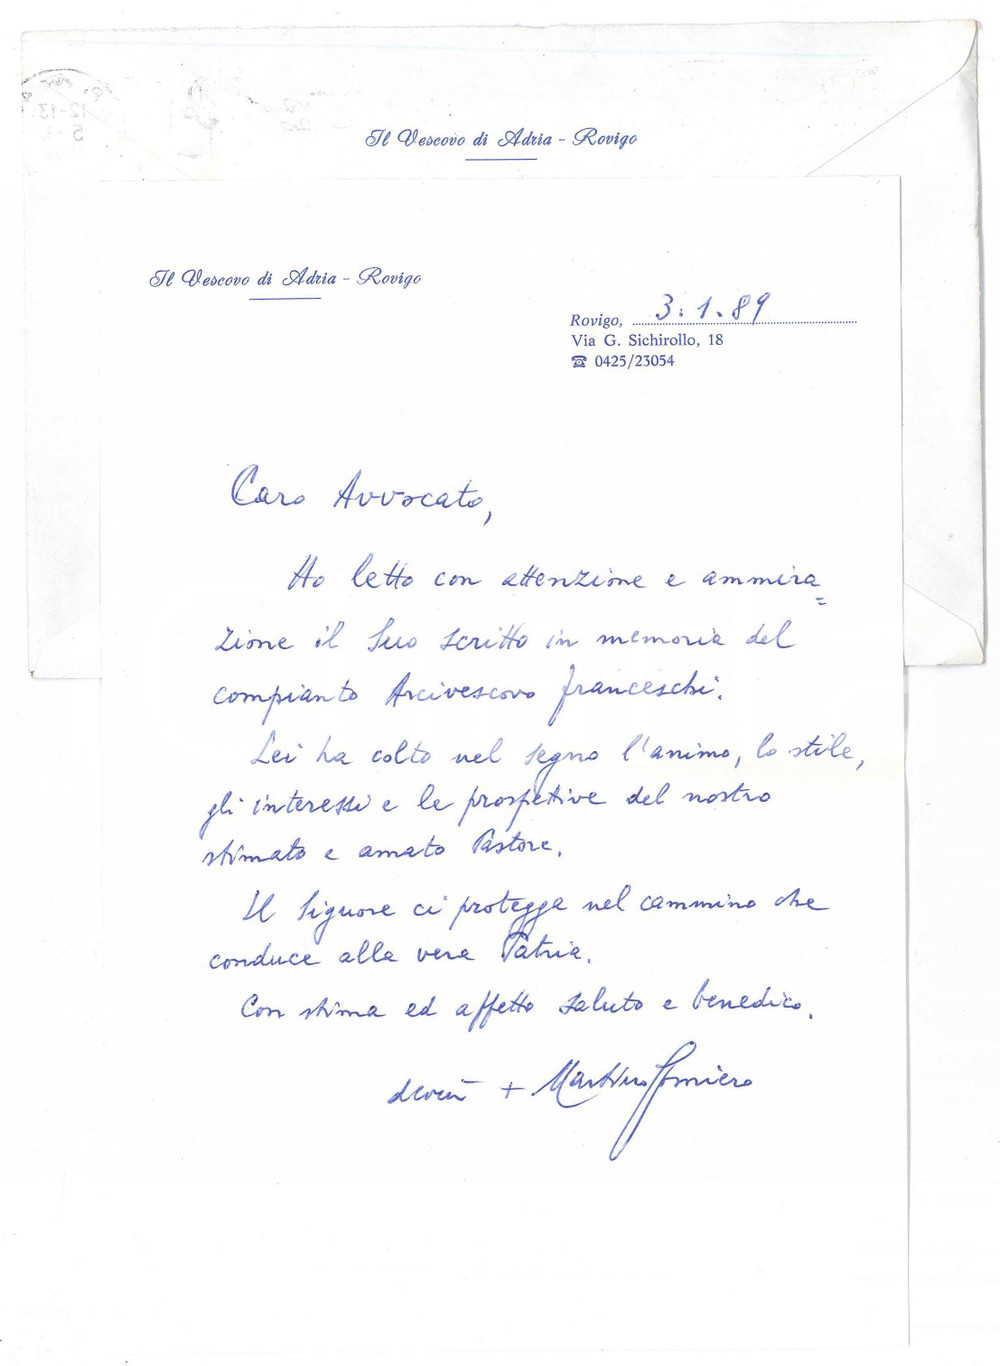 Il Vescovo di Adria - Rovigo
Il Vescovo di Adria - Rovigo
Rovigo, 3.1.89
Via G. Sichirollo, 18
☎ 0425/23054
Caro Avvocato,
Ho letto con attenzione e ammira=
zione il Suo scritto in memoria del
compianto Arcivescovo Franceschi.
Lei ha colto nel segno l'animo, lo stile,
gli interessi e le prospettive del nostro
stimato e amato Pastore.
Il Signore ci protegga nel cammino che
conduce alla vera Patria.
Con stima ed affetto saluto e benedico.
+ Martino Gomiero